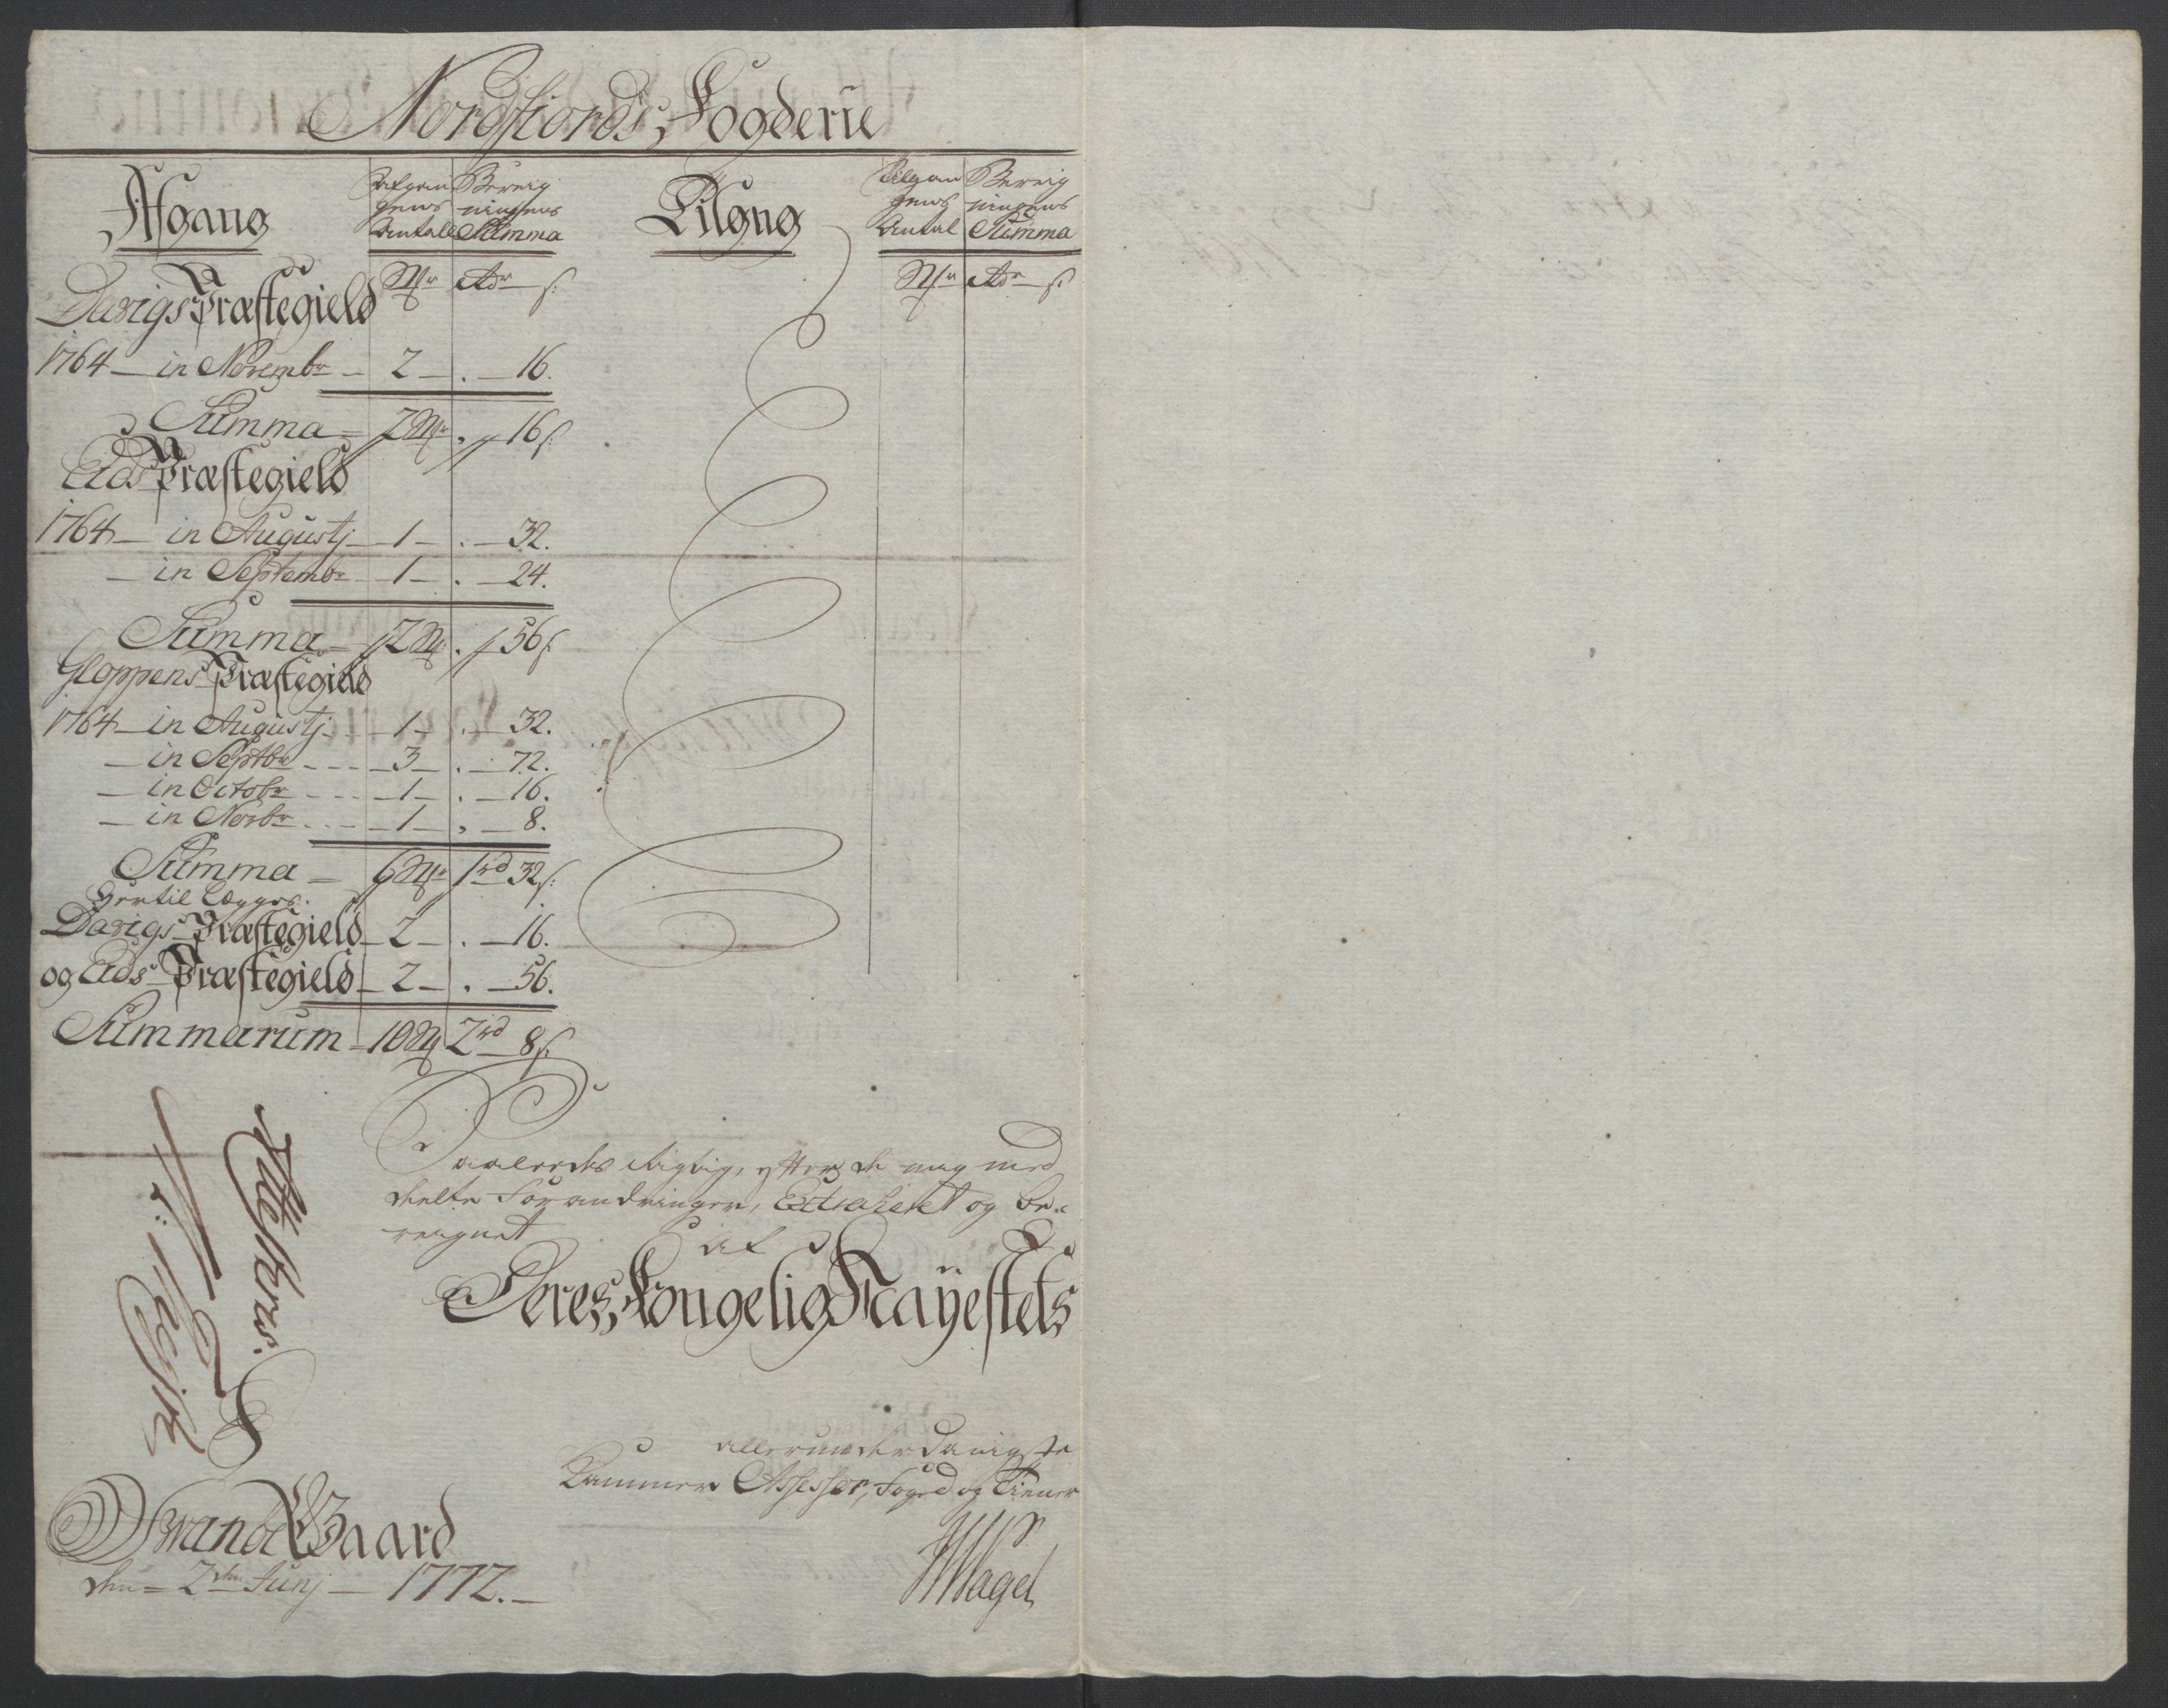 Nordfiords, Fogderie
Afgang
Afgan
gens
Antall
Bereig
ningens
Summa
Tilgng
Tilgan
gens
Antal
Bereig
ningens
Summa
Davigs Præstegield Mr rdr s:
Mr rdr s:
1764 — in Novembr — 2 — . — 16.
Summa — 2 Mr . 16 s:
Eids Præstegield
1764 — in Augustj — 1 — . — 32.
— in Septembr — 1 — . — 24.
Summa — 2 Mr . 56 s:
Gloppens Præstegield
1764 — in Augustj — 1 — . — 32.
— in Septbr — 3 — . — 72.
— in Octobr — 1 — . — 16.
— in Novbr — 1 — . — 8.
Summa — 6 Mr 1 rd 32 s:
Hertil Lægges.
Davigs Præstegield — 2 — . — 16.
og Eids Præstegield — 2 — . — 56.
Summarum — 10 Mr 2 rd 8 s:
Saaledes Rigtig, efter de mig med
deelte Forandringer, Extraheret og be-
reignet
af
Deres, Kongelig Mayestets
allerunderdanigste
Kammer Assessor, Foged og Tiener
Wagel
Attesteres.
Svande Gaard
den 2den Junj — 1772. —